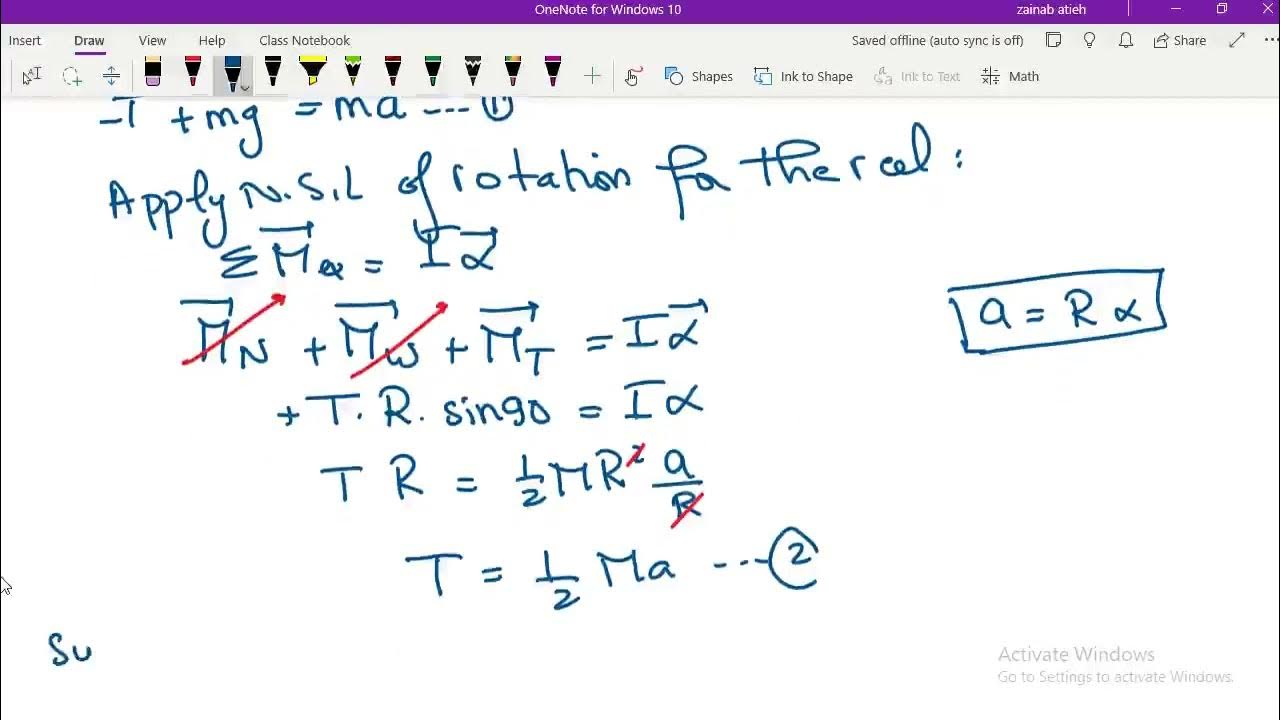 OneNote for Windows 10
zainab atieh
Insert Draw View Help Class Notebook
Saved offline (auto sync is off) Share
Shapes Ink to Shape Ink to Text Math
-T + mg = ma --- ①
Apply N.S.L of rotation for the reel :
Σ M⃗ex = I α⃗
M⃗N + M⃗W + M⃗T = I α⃗
a = R α
+ T. R. sin90 = I α
T R = 1/2 MR² a/R
T = 1/2 Ma --- ②
Su
Activate Windows
Go to Settings to activate Windows.